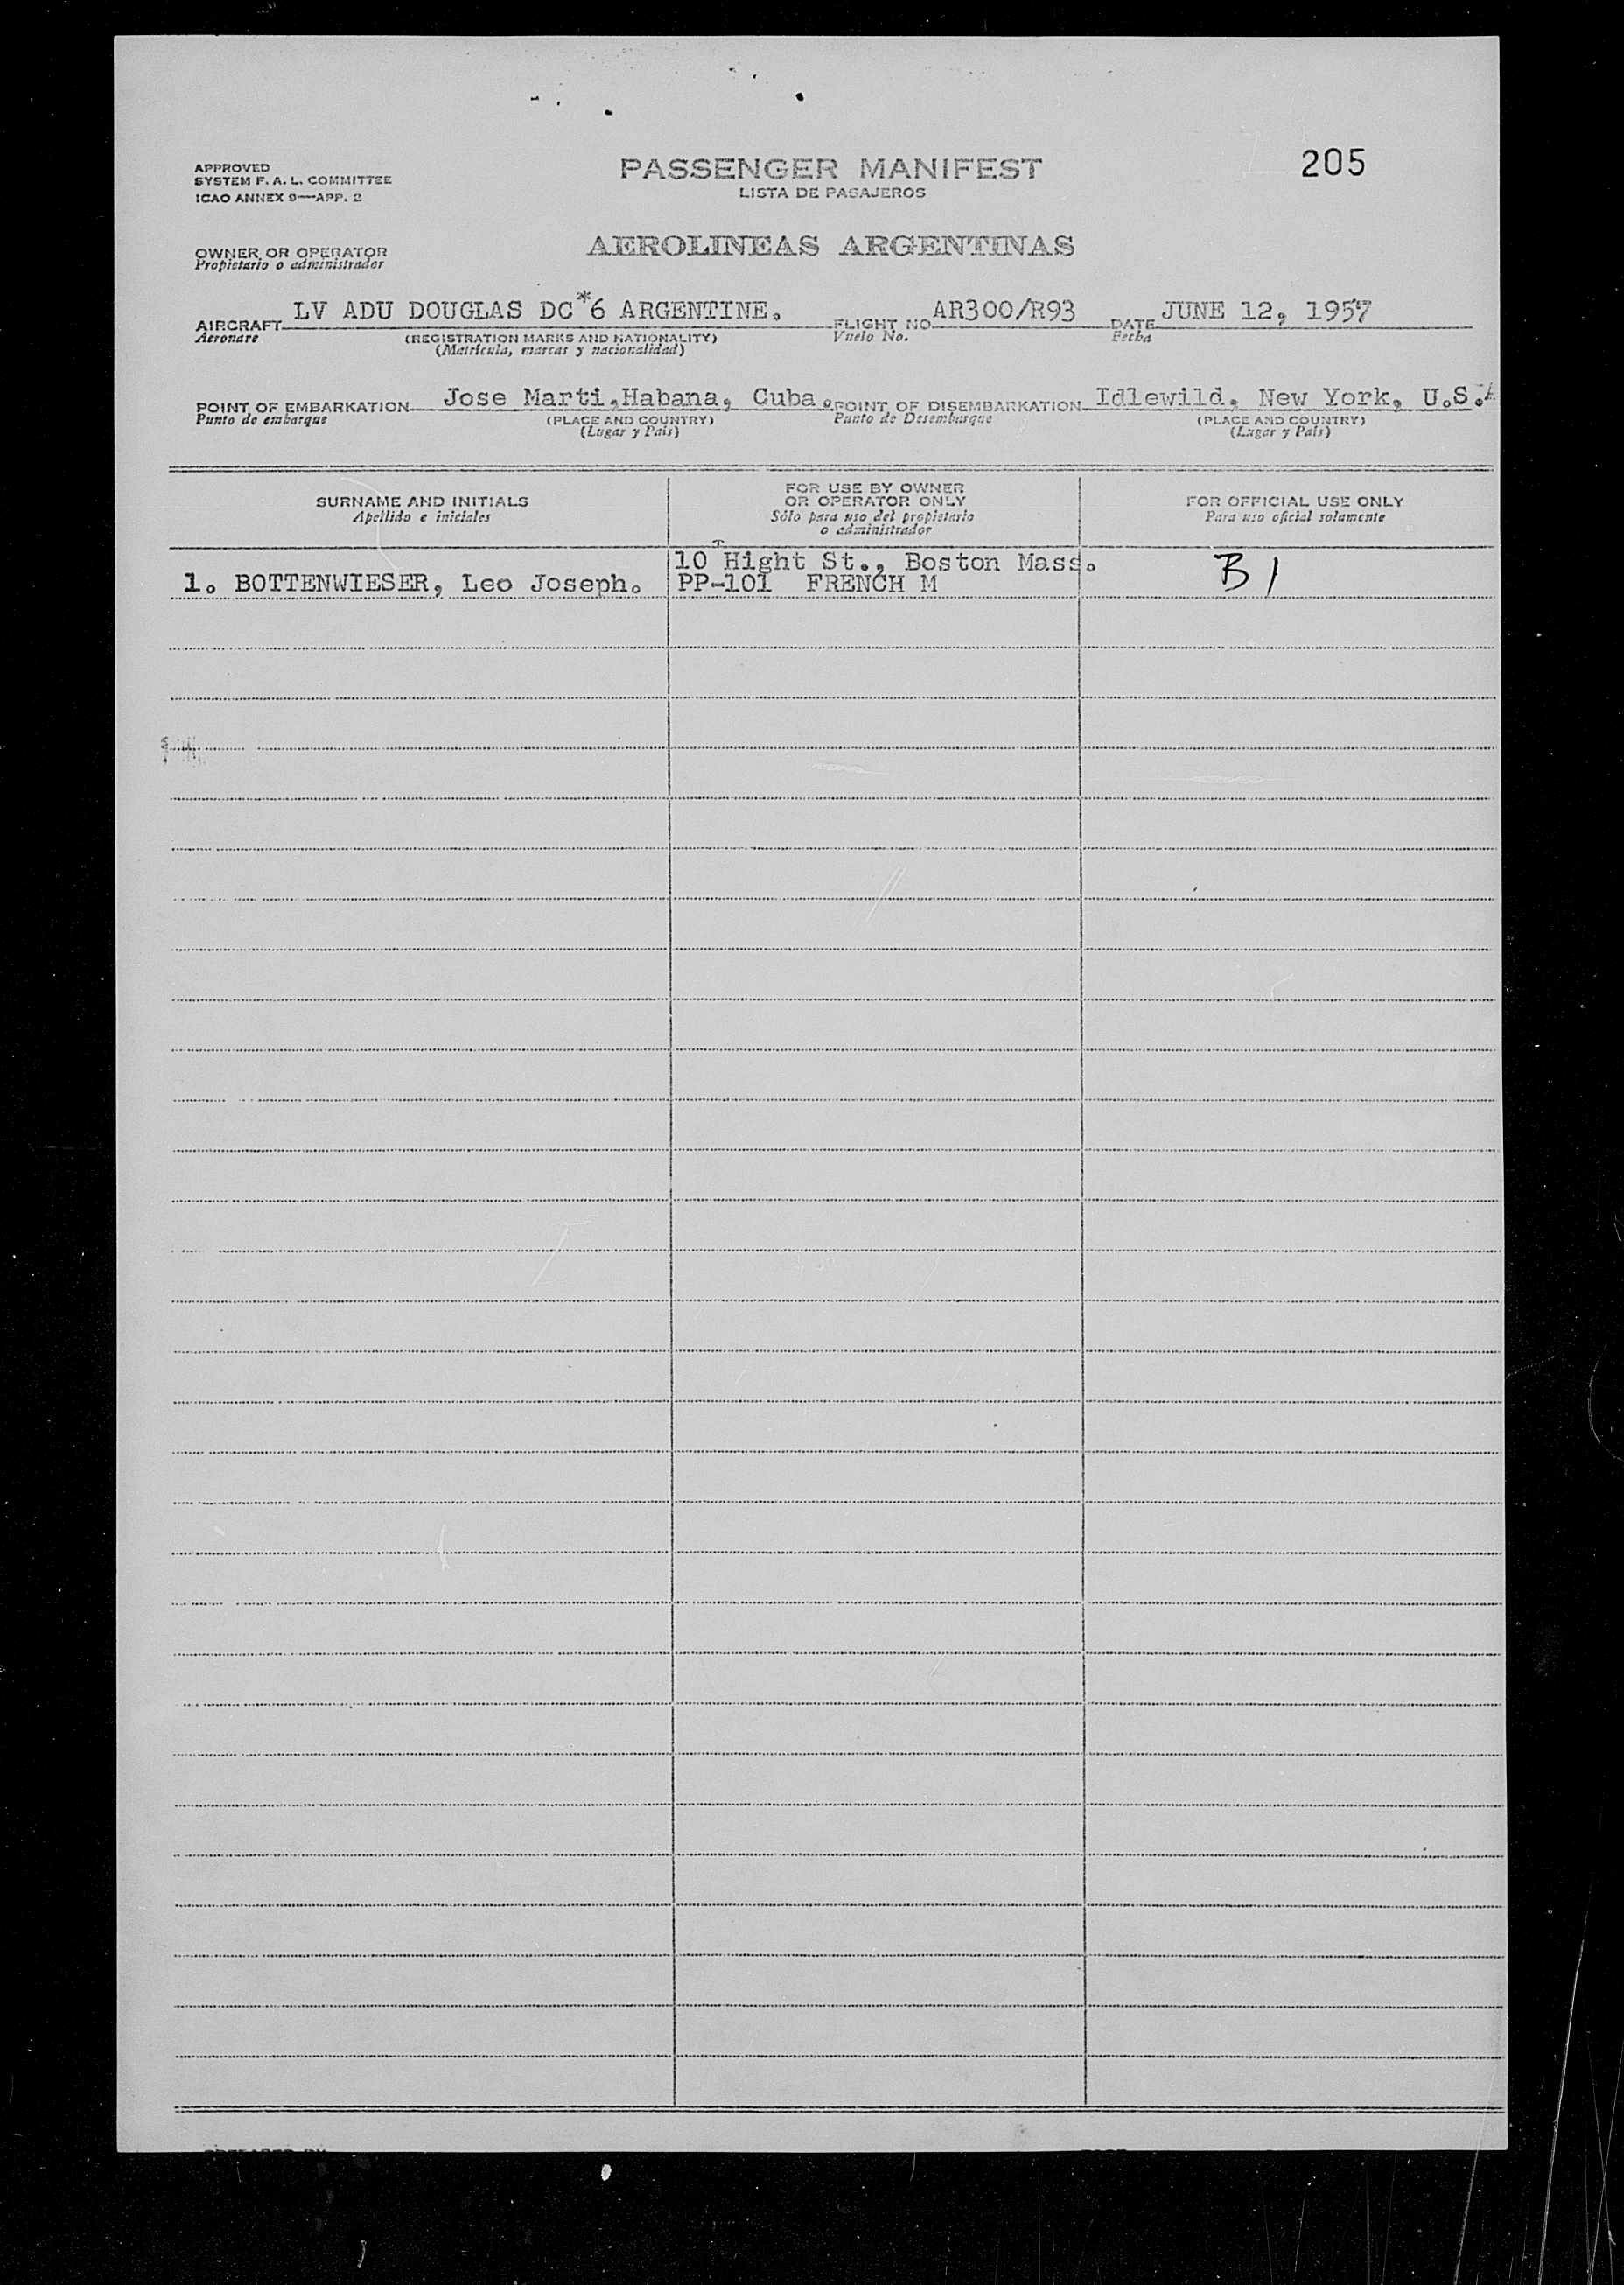 205
APPROVED
SYSTEM F. A. L. COMMITTEE
ICAO ANNEX 9—APP. 2
PASSENGER MANIFEST
LISTA DE PASAJEROS
OWNER OR OPERATOR
Propietario o administrador
AEROLINEAS ARGENTINAS
AIRCRAFT LV ADU DOUGLAS DC*6 ARGENTINE. FLIGHT NO AR300/R93 DATE JUNE 12, 1957
Aeronare (REGISTRATION MARKS AND NATIONALITY) Vuelo No. Fecha
(Matrícula, marcas y nacionalidad)
POINT OF EMBARKATION Jose Marti.Habana, Cuba. POINT OF DISEMBARKATION Idlewild. New York, U.S.A
Punto de embarque (PLACE AND COUNTRY) Punto de Desembarque (PLACE AND COUNTRY)
(Lugar y País) (Lugar y País)
SURNAME AND INITIALS
Apellido e iniciales
FOR USE BY OWNER
OR OPERATOR ONLY
Sólo para uso del propietario
o administrador
FOR OFFICIAL USE ONLY
Para uso oficial solamente
10 Hight St., Boston Mass.
1. BOTTENWIESER, Leo Joseph. PP-101 FRENCH M B1